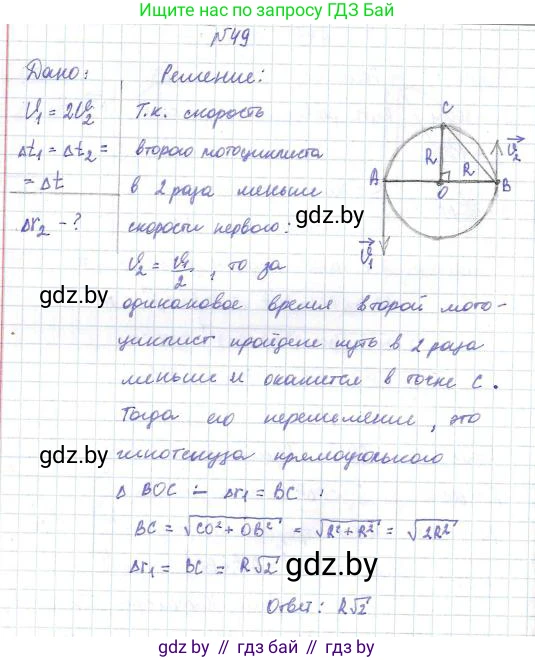 Ищите ответы по запросу ГДЗ Бай
№49
Дано:
Решение:
V₁ = 2V₂
Т.к. скорость
Δt₁ = Δt₂ =
второго мотоциклиста
= Δt
в 2 раза меньше
Δr₂ - ?
скорости первого:
V₂ = V₁/2, то за
одинаковое время второй мото-
циклист пройдет путь в 2 раза
меньше и окажется в точке C.
Тогда его перемещение, это
гипотенуза прямоугольного
Δ BOC – Δr₁ = BC
BC = √CO² + OB² = √R² + R² = √2R²
Δr₁ = BC = R√2
Ответ: R√2
C
R
R
A
O
B
V₂
V₁
gdz.by
gdz.by
gdz.by
gdz.by
gdz.by // гдз бай // gdz.by